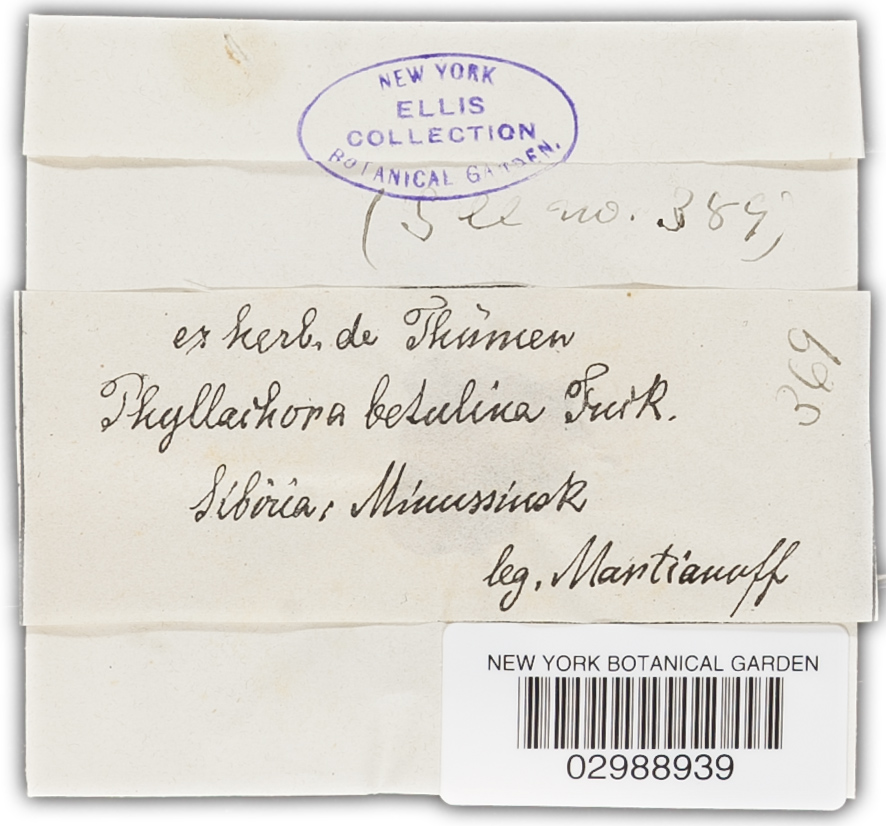 NEW YORK
ELLIS
COLLECTION
BOTANICAL GARDEN.
(See no. 389)
ex herb. de Thümen
369
Phyllachora betulina Fuck.
Sibiria: Minussinsk
leg. Martianoff
NEW YORK BOTANICAL GARDEN
02988939